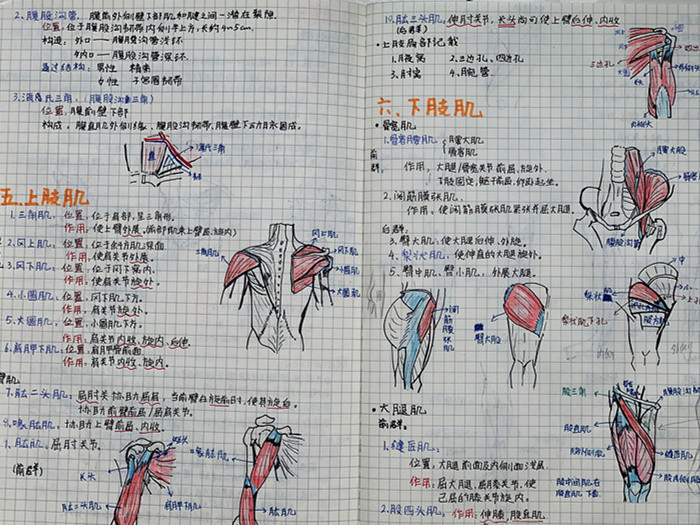 2. 腹股沟管. 腹前外侧壁下部肌和腱之间一潜在裂隙.
位置: 位于腹股沟韧带内侧半上方, 长约4~5cm.
构造: 外口——腹股沟管浅环.
内口——腹股沟管深环.
通过结构: 男性 精索
女性 子宫圆韧带
3. 海氏三角: (腹股沟三角)
位置: 腹前壁下部
构成: 腹直肌外侧缘、腹股沟韧带, 腹壁下动脉围成.
海氏三角
五、上肢肌
1. 三角肌: 位置: 位于肩部, 呈三角形.
作用: 使上臂外展.
2. 冈上肌: 位置: 位于斜方肌深面
作用: 使肩关节外展.
3. 冈下肌: 位置: 位于冈下窝内.
作用: 使肩关节旋外.
4. 小圆肌: 位置: 冈下肌下方.
作用: 肩关节旋外.
5. 大圆肌: 位置: 小圆肌下方.
作用: 肩关节内收、旋内、后伸
6. 肩胛下肌: 位置: 肩胛骨前面
作用: 肩关节内收、旋内.
三角肌
冈上肌
冈下肌
小圆肌
大圆肌
臂肌
7. 肱二头肌: 屈肘关节、协助屈肩, 当前臂在旋前时, 使其旋后.
8. 喙肱肌: 协助上臂前屈、内收.
9. 肱肌: 屈肘关节.
(前群)
长头
短头
肱二头肌
肩胛下肌
喙肱肌
肱肌
10. 肱三头肌: 伸肘关节, 长头尚可使上臂后伸、内收
(后群)
·上肢局部记载
1. 腋窝 2. 三边孔、四边孔
3. 肘窝 4. 腕管.
三边孔
大圆
长头
六、下肢肌
·髋肌
前群:
1. 髂腰肌 腰大肌
髂肌
作用: 大腿/髋关节前屈、旋外.
下肢固定, 躯干前屈, 仰卧起坐.
2. 阔筋膜张肌.
作用: 使阔筋膜张肌紧张并屈大腿.
后群:
3. 臀大肌: 使大腿后伸、外旋.
4. 梨状肌: 使伸直的大腿旋外.
5. 臀中肌、臀小肌: 外展大腿.
腰大肌
腹股沟
阔筋膜张肌
臀大肌
梨状
梨状肌下孔
·大腿肌
前群.
1. 缝匠肌:
位置: 大腿前面及内侧面浅层.
作用: 屈大腿、屈膝关节, 使
已屈的膝关节旋内.
2. 股四头肌: 作用: 伸膝, 股直肌
股三角
股直肌
股外侧肌
股中间肌在
股直肌下面.
腹股沟
缝匠肌
股内侧肌